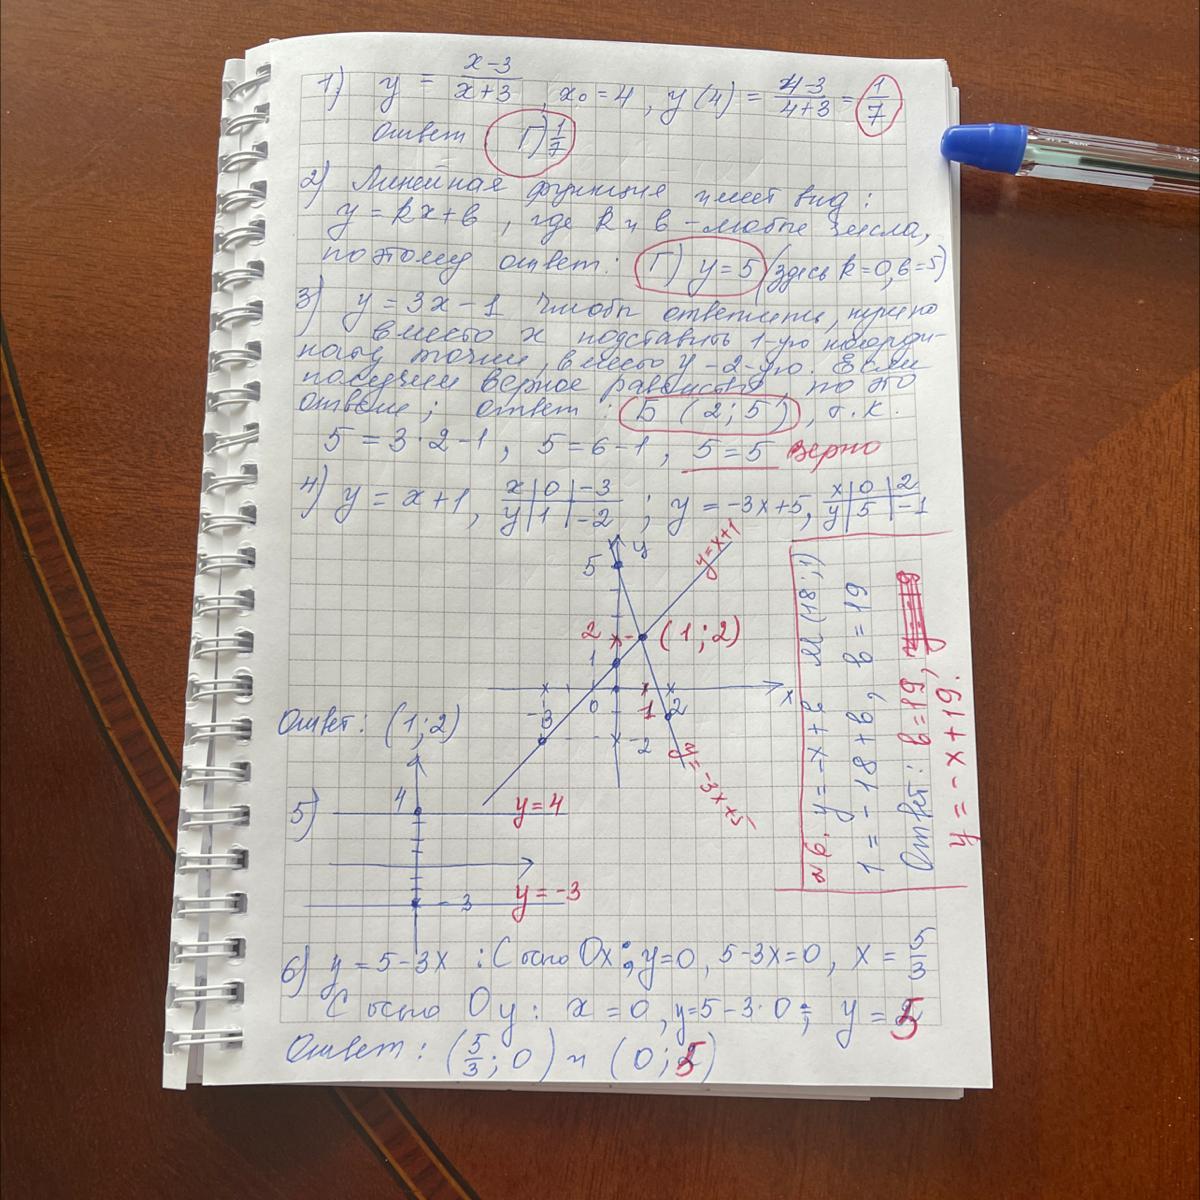 1) y = (x-3)/(x+3), x₀ = 4, y(4) = (4-3)/(4+3) = 1/7
Ответ Г) 1/7
2) Линейная функция имеет вид:
y = kx+b, где k и b - любые числа,
поэтому ответ: Г) y = 5 (здесь k = 0, b = 5)
3) y = 3x - 1 Чтобы ответить, нужно
вместо x подставить 1-ую коорди-
нату точки, вместо y - 2-ую. Если
получим верное равенство, то это
ответ; ответ: Б (2; 5), т.к.
5 = 3·2-1, 5 = 6-1, 5 = 5 верно
4) y = x+1, x | 0 | -3 ; y = -3x+5, x | 0 | 2
y | 1 | -2 y | 5 | -1
y
y=x+1
5
2
(1; 2)
1
-3 0 1 2 x
-2
y = -3x+5
Ответ: (1; 2)
5)
4
y = 4
-3
y = -3
№6. y = -x+b M(18; 1)
1 = -18+b, b = 19
Ответ: b = 19,
y = -x+19.
6) y = 5-3x : С осью Ox: y=0, 5-3x=0, x = 5/3
С осью Oy: x = 0, y=5-3·0; y = 5
Ответ: (5/3; 0) и (0; 5)